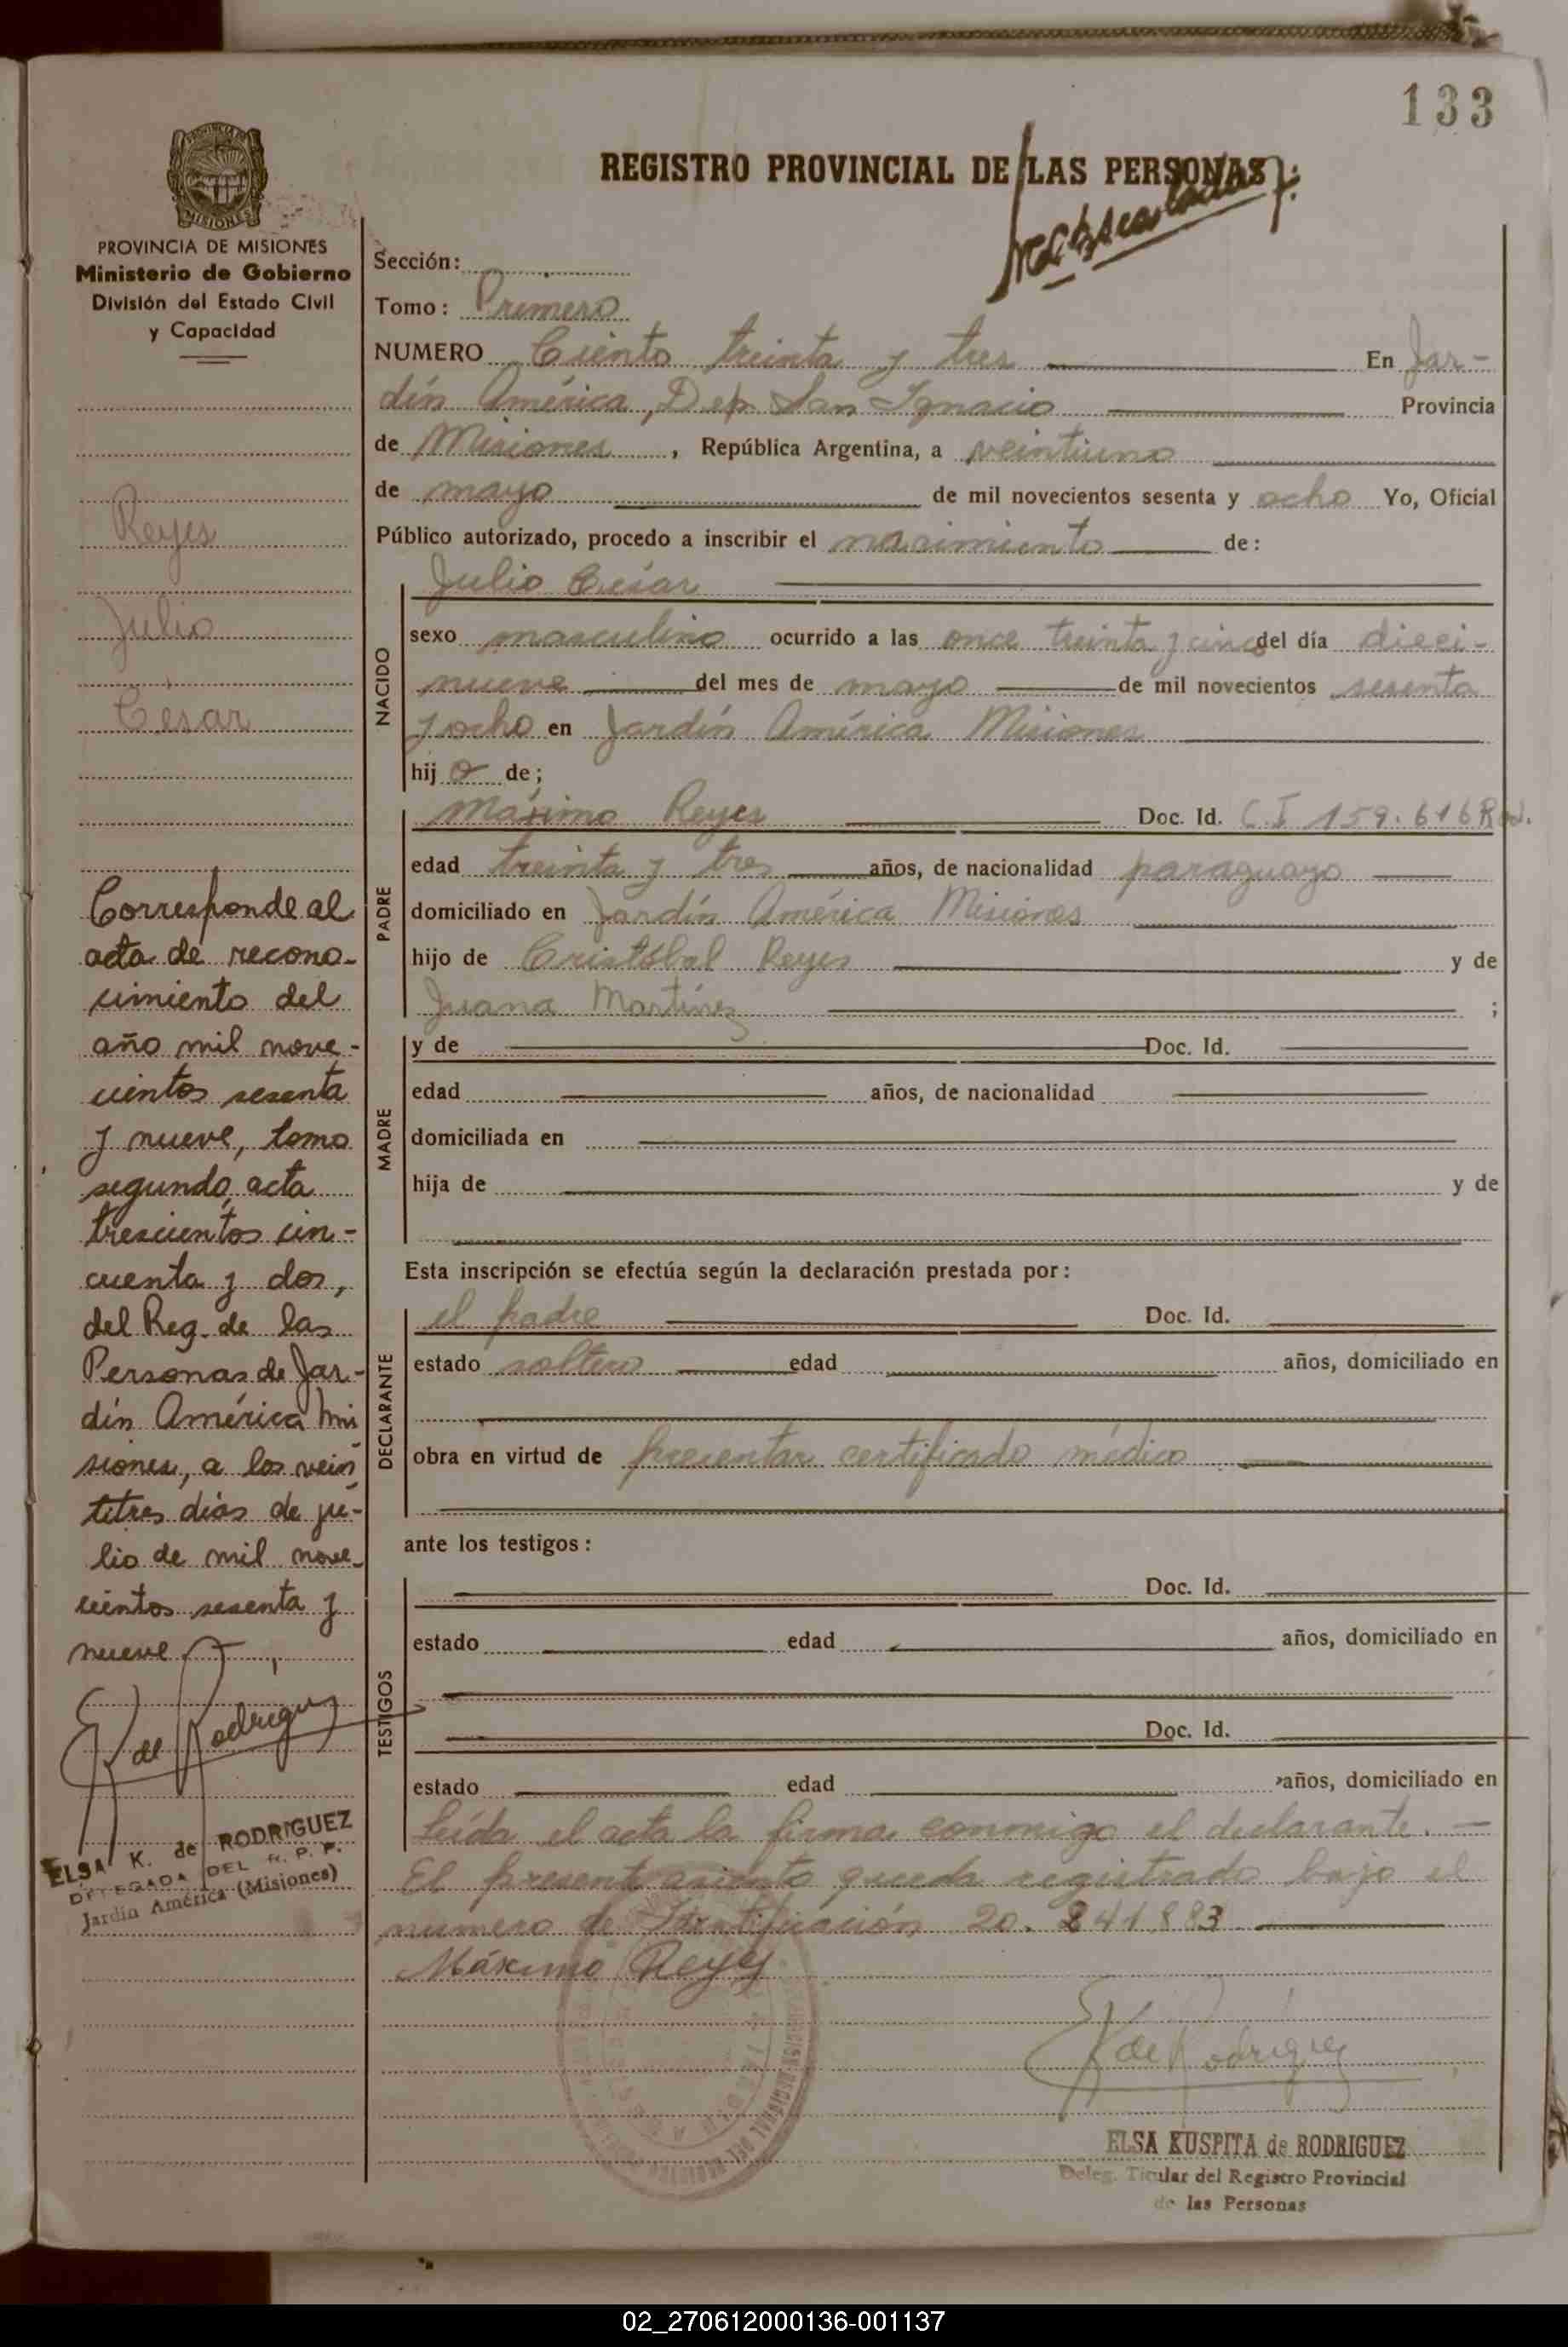 133
REGISTRO PROVINCIAL DE LAS PERSONAS
PROVINCIA DE MISIONES
Ministerio de Gobierno
División del Estado Civil
y Capacidad
Reyes
Julio
César
Corresponde al
acta de recono-
cimiento del
año mil nove-
cientos sesenta
y nueve, tomo
segundo, acta
trescientos cin-
cuenta y dos,
del Reg. de las
Personas de Jar-
dín América Mi
siones, a los vein
titres días de ju-
lio de mil nove-
cientos sesenta y
nueve
E K de Rodriguez
ELSA K. de RODRIGUEZ
DELEGADA DEL R. P. P.
Jardín América (Misiones)
Sección:
Tomo: Primero
NUMERO Ciento treinta y tres En Jar-
dín América, Dep. San Ignacio Provincia
de Misiones, República Argentina, a veintiuno
de mayo de mil novecientos sesenta y ocho Yo, Oficial
Público autorizado, procedo a inscribir el nacimiento de:
NACIDO
Julio César
sexo masculino ocurrido a las once treinta y cinco del día dieci-
nueve del mes de mayo de mil novecientos sesenta
y ocho en Jardín América Misiones
hijo de;
PADRE
Máximo Reyes Doc. Id. C I 159.616 Pod.
edad treinta y tres años, de nacionalidad paraguayo
domiciliado en Jardín América Misiones
hijo de Cristóbal Reyes y de
Juana Martínez ;
MADRE
y de Doc. Id.
edad años, de nacionalidad
domiciliada en
hija de y de
Esta inscripción se efectúa según la declaración prestada por:
DECLARANTE
el padre Doc. Id.
estado soltero edad años, domiciliado en
obra en virtud de presentar certificado médico
ante los testigos:
TESTIGOS
Doc. Id.
estado edad años, domiciliado en
Doc. Id.
estado edad años, domiciliado en
Leída el acta la firma conmigo el declarante. —
El present asiento queda registrado bajo el
numero de Identificación 20. 241883
Máximo Reyes
E K de Rodriguez
ELSA KUSPITA de RODRIGUEZ
Deleg. Titular del Registro Provincial
de las Personas
02_270612000136-001137